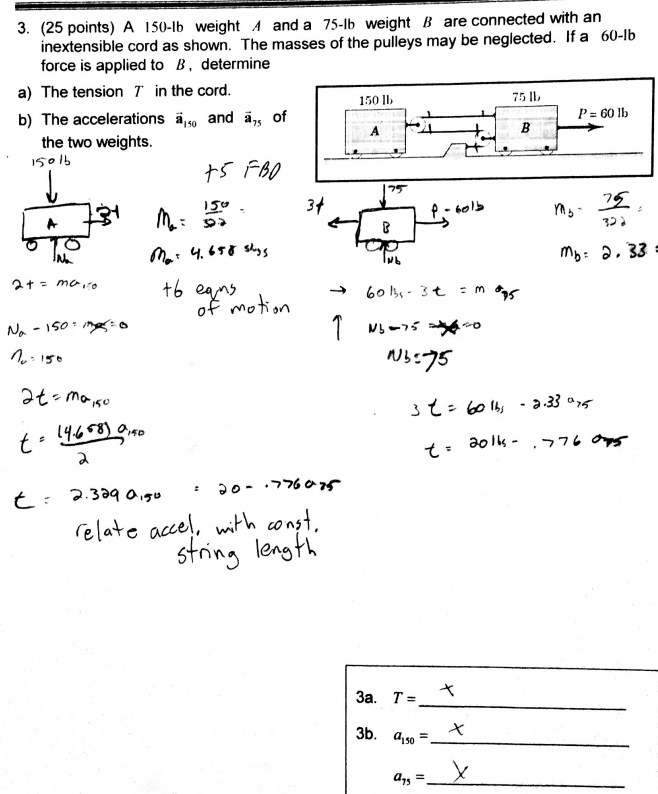 3. (25 points) A 150-lb weight A and a 75-lb weight B are connected with an
inextensible cord as shown. The masses of the pulleys may be neglected. If a 60-lb
force is applied to B, determine
a) The tension T in the cord.
b) The accelerations a⃗₁₅₀ and a⃗₇₅ of
the two weights.
150 lb
75 lb
P = 60 lb
A
B
150 lb
+5 FBD
A
Na
Ma = 150/32.2
Ma = 4.658 slugs
75
3t
P = 60lb
B
Nb
mb = 75/32.2 =
mb = 2.33
2t = ma₁₅₀
+6 eqns
of motion
→ 60 lbs - 3t = m a₇₅
Na - 150 = = 0
↑ Nb - 75 = 0
Na = 150
Nb = 75
2t = ma₁₅₀
t = (4.658) a₁₅₀ / 2
3t = 60 lbs - 2.33 a₇₅
t = 20 lbs - .776 a₇₅
t = 2.329 a₁₅₀ = 20 - .776 a₇₅
relate accel. with const.
string length
3a. T = x
3b. a₁₅₀ = x
a₇₅ = x